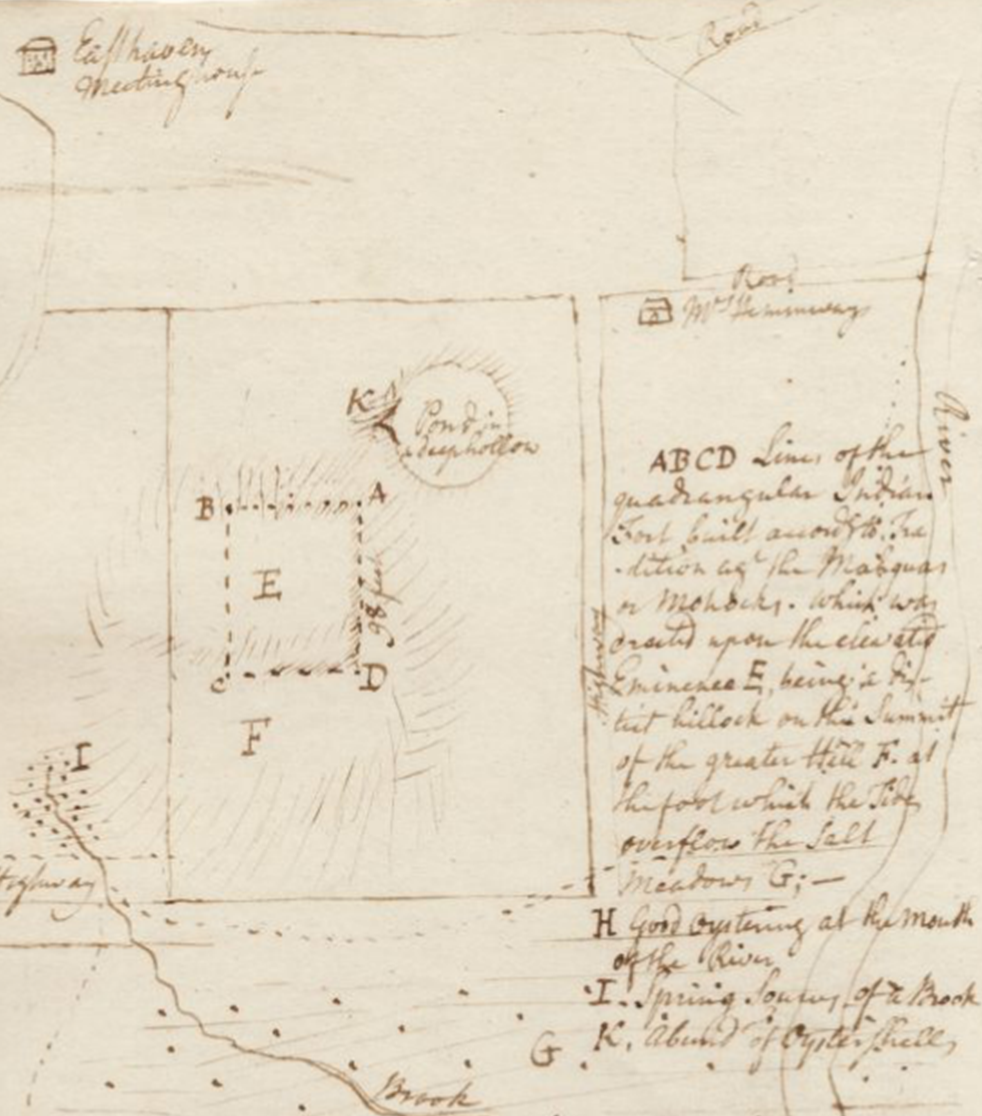 Easthaven
Meeting house
Road
Road
Mr Hemmways
River
K
Pond in
a deep hollow
B
A
E
98 feet
C
D
F
I
Highway
Highway
ABCD Lines of the
quadrangular Indian
Fort built accordg to Tra
-dition agt the Maaquas
or Mohocks. which was
erected upon the elevated
Eminence E, being a dis-
tict hillock on the Summit
of the greater Hill F. at
the foot which the Tide
overflows the Salt
Meadows G; —
H Good Oystering at the Mouth
of the River
I. Spring Sources of a Brook
K. Abund of Oyster shells
G
Brook